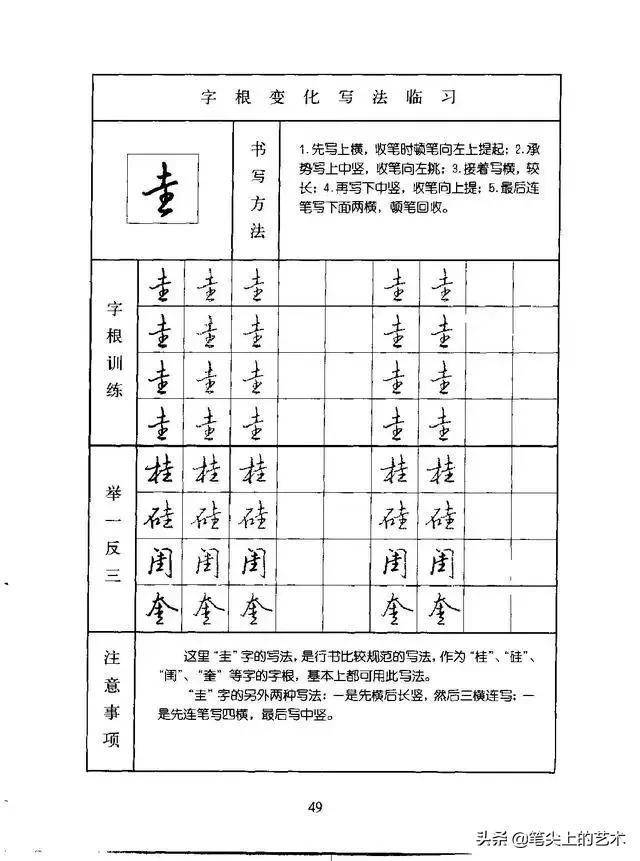 字根变化写法临习
圭
书写方法
1.先写上横，收笔时顿笔向左上提起；2.承
势写上中竖，收笔向左挑；3.接着写横，较
长；4.再写下中竖，收笔向上提；5.最后连
笔写下面两横，顿笔回收。
字根训练
圭圭圭圭圭
圭圭圭圭圭
圭圭圭圭圭
圭圭圭圭圭
举一反三
桂桂桂桂桂
硅硅硅硅硅
闺闺闺闺闺
奎奎奎奎奎
注意事项
这里“圭”字的写法，是行书比较规范的写法，作为“桂”、“硅”、
“闺”、“奎”等字的字根，基本上都可用此写法。
“圭”字的另外两种写法：一是先横后长竖，然后三横连写；一
是先连笔写四横，最后写中竖。
49
头条@笔尖上的艺术